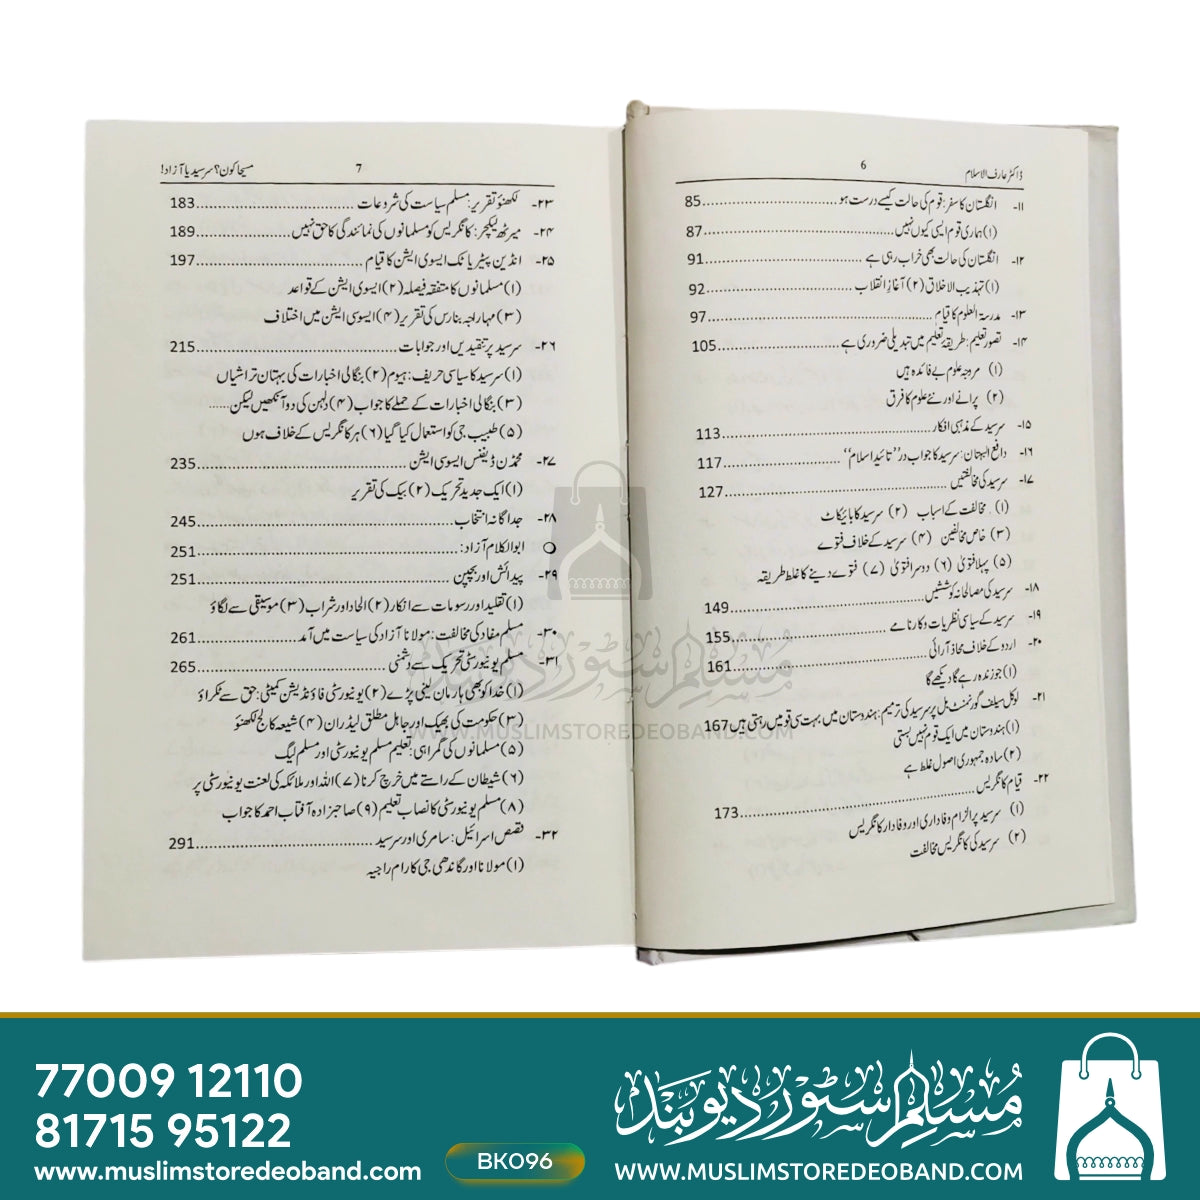 ڈاکٹر عارف الاسلام
6
۱۱- انگلستان کا سفر: قوم کی حالت کیسے درست ہو ... 85
(۱) ہماری قوم ایسی کیوں نہیں ... 87
۱۲- انگلستان کی حالت بھی خراب رہی ہے ... 91
(۱) تہذیب الاخلاق (۲) آغازِ انقلاب ... 92
۱۳- مدرسۃ العلوم کا قیام ... 97
۱۴- تصورِ تعلیم: طریقۂ تعلیم میں تبدیلی ضروری ہے ... 105
(۱) مروجہ علوم بے فائدہ ہیں
(۲) پرانے اور نئے علوم کا فرق
۱۵- سرسید کے مذہبی افکار ... 113
۱۶- دافع البہتان: سرسید کا جواب در ’’تائید اسلام‘‘ ... 117
۱۷- سرسید کی مخالفتیں ... 127
(۱) مخالفت کے اسباب (۲) سرسید کا بائیکاٹ
(۳) خاص مخالفین (۴) سرسید کے خلاف فتوے
(۵) پہلا فتویٰ (۶) دوسرا فتویٰ (۷) فتوے دینے کا غلط طریقہ
۱۸- سرسید کی مصالحانہ کوششیں ... 149
۱۹- سرسید کے سیاسی نظریات و کارنامے ... 155
۲۰- اردو کے خلاف محاذ آرائی ... 161
(۱) جو زندہ رہے گا دیکھے گا
۲۱- لوکل سیلف گورنمنٹ بل پر سرسید کی ترمیم: ہندوستان میں بہت سی قومیں رہتی ہیں 167
(۱) ہندوستان میں ایک قوم نہیں بستی
(۲) سادہ جمہوری اصول غلط ہے
۲۲- قیام کانگریس ... 173
(۱) سرسید پر الزام وفاداری اور وفادار کانگریس
(۲) سرسید کی کانگریس مخالفت
7
مسیحا کون؟ سرسید یا آزاد!
۲۳- لکھنؤ تقریر: مسلم سیاست کی شروعات ... 183
۲۴- میرٹھ لیکچر: کانگریس کو مسلمانوں کی نمائندگی کا حق نہیں ... 189
۲۵- انڈین پیٹریاٹک ایسوی ایشن کا قیام ... 197
(۱) مسلمانوں کا متفقہ فیصلہ (۲) ایسوی ایشن کے قواعد
(۳) مہاراجہ بنارس کی تقریر (۴) ایسوسی ایشن میں اختلاف
۲۶- سرسید پر تنقیدیں اور جوابات ... 215
(۱) سرسید کا سیاسی حریف: ہیوم (۲) بنگالی اخبارات کی بہتان تراشیاں
(۳) بنگالی اخبارات کے حملے کا جواب (۴) دلہن کی دو آنکھیں لیکن......
(۵) طبیب جی کو استعمال کیا گیا (۶) ہر کانگریس کے خلاف ہوں
۲۷- محمڈن ڈیفنس ایسوسی ایشن ... 235
(۱) ایک جدید تحریک (۲) بیک کی تقریر
۲۸- جداگانہ انتخاب ... 245
○ ابوالکلام آزاد: ... 251
۲۹- پیدائش اور بچپن ... 251
(۱) تقلید اور رسومات سے انکار (۲) الحاد اور شراب (۳) موسیقی سے لگاؤ
۳۰- مسلم مفاد کی مخالفت: مولانا آزاد کی سیاست میں آمد ... 261
۳۱- مسلم یونیورسٹی تحریک سے دشمنی ... 265
(۱) خدا کو بھی ہار مان لینی پڑے (۲) یونیورسٹی فاؤنڈیشن کمیٹی: حق سے ٹکراؤ
(۳) حکومت کی بھیک اور جاہل مطلق لیڈران (۴) شیعہ کالج لکھنؤ
(۵) مسلمانوں کی گمراہی: تعلیم مسلم یونیورسٹی اور مسلم لیگ
(۶) شیطان کے راستے میں خرچ کرنا (۷) اللہ اور ملائکہ کی لعنت یونیورسٹی پر
(۸) مسلم یونیورسٹی کا نصاب تعلیم (۹) صاحبزادہ آفتاب احمد کا جواب
۳۲- قصص اسرائیل: سامری اور سرسید ... 291
(۱) مولانا اور گاندھی جی کا رام راجیہ
مسلم سٹور دیوبند
WWW.MUSLIMSTOREDEOBAND.COM
77009 12110
81715 95122
www.muslimstoredeoband.com
BK096
مسلم سٹور دیوبند
WWW.MUSLIMSTOREDEOBAND.COM